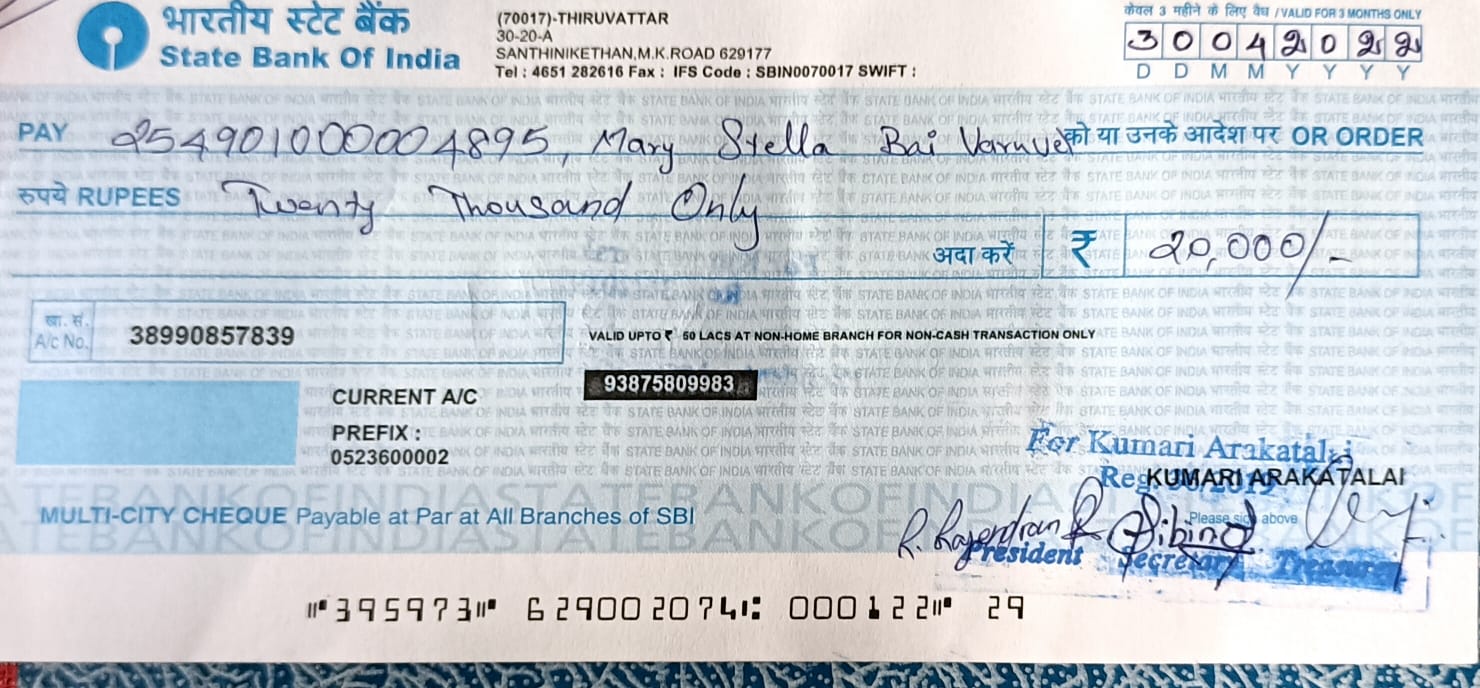 भारतीय स्टेट बैंक
State Bank Of India
(70017)-THIRUVATTAR
30-20-A
SANTHINIKETHAN,M.K.ROAD 629177
Tel : 4651 282616 Fax : IFS Code : SBIN0070017 SWIFT :
केवल 3 महीने के लिए वैध /VALID FOR 3 MONTHS ONLY
30042022
D D M M Y Y Y Y
PAY 25490100004895, Mary Stella Bai को या उनके आदेश पर OR ORDER
रुपये RUPEES Twenty Thousand Only
अदा करें ₹ 20,000/-
खा. सं.
A/c No. 38990857839
VALID UPTO ₹ 50 LACS AT NON-HOME BRANCH FOR NON-CASH TRANSACTION ONLY
93875809983
CURRENT A/C
PREFIX :
0523600002
For Kumari Arakatalai
KUMARI ARAKATALAI
MULTI-CITY CHEQUE Payable at Par at All Branches of SBI
Please sign above
R. Rajendran
President Secretary Treasurer
⑈395973⑈ 629002074⑆ 000122⑈ 29